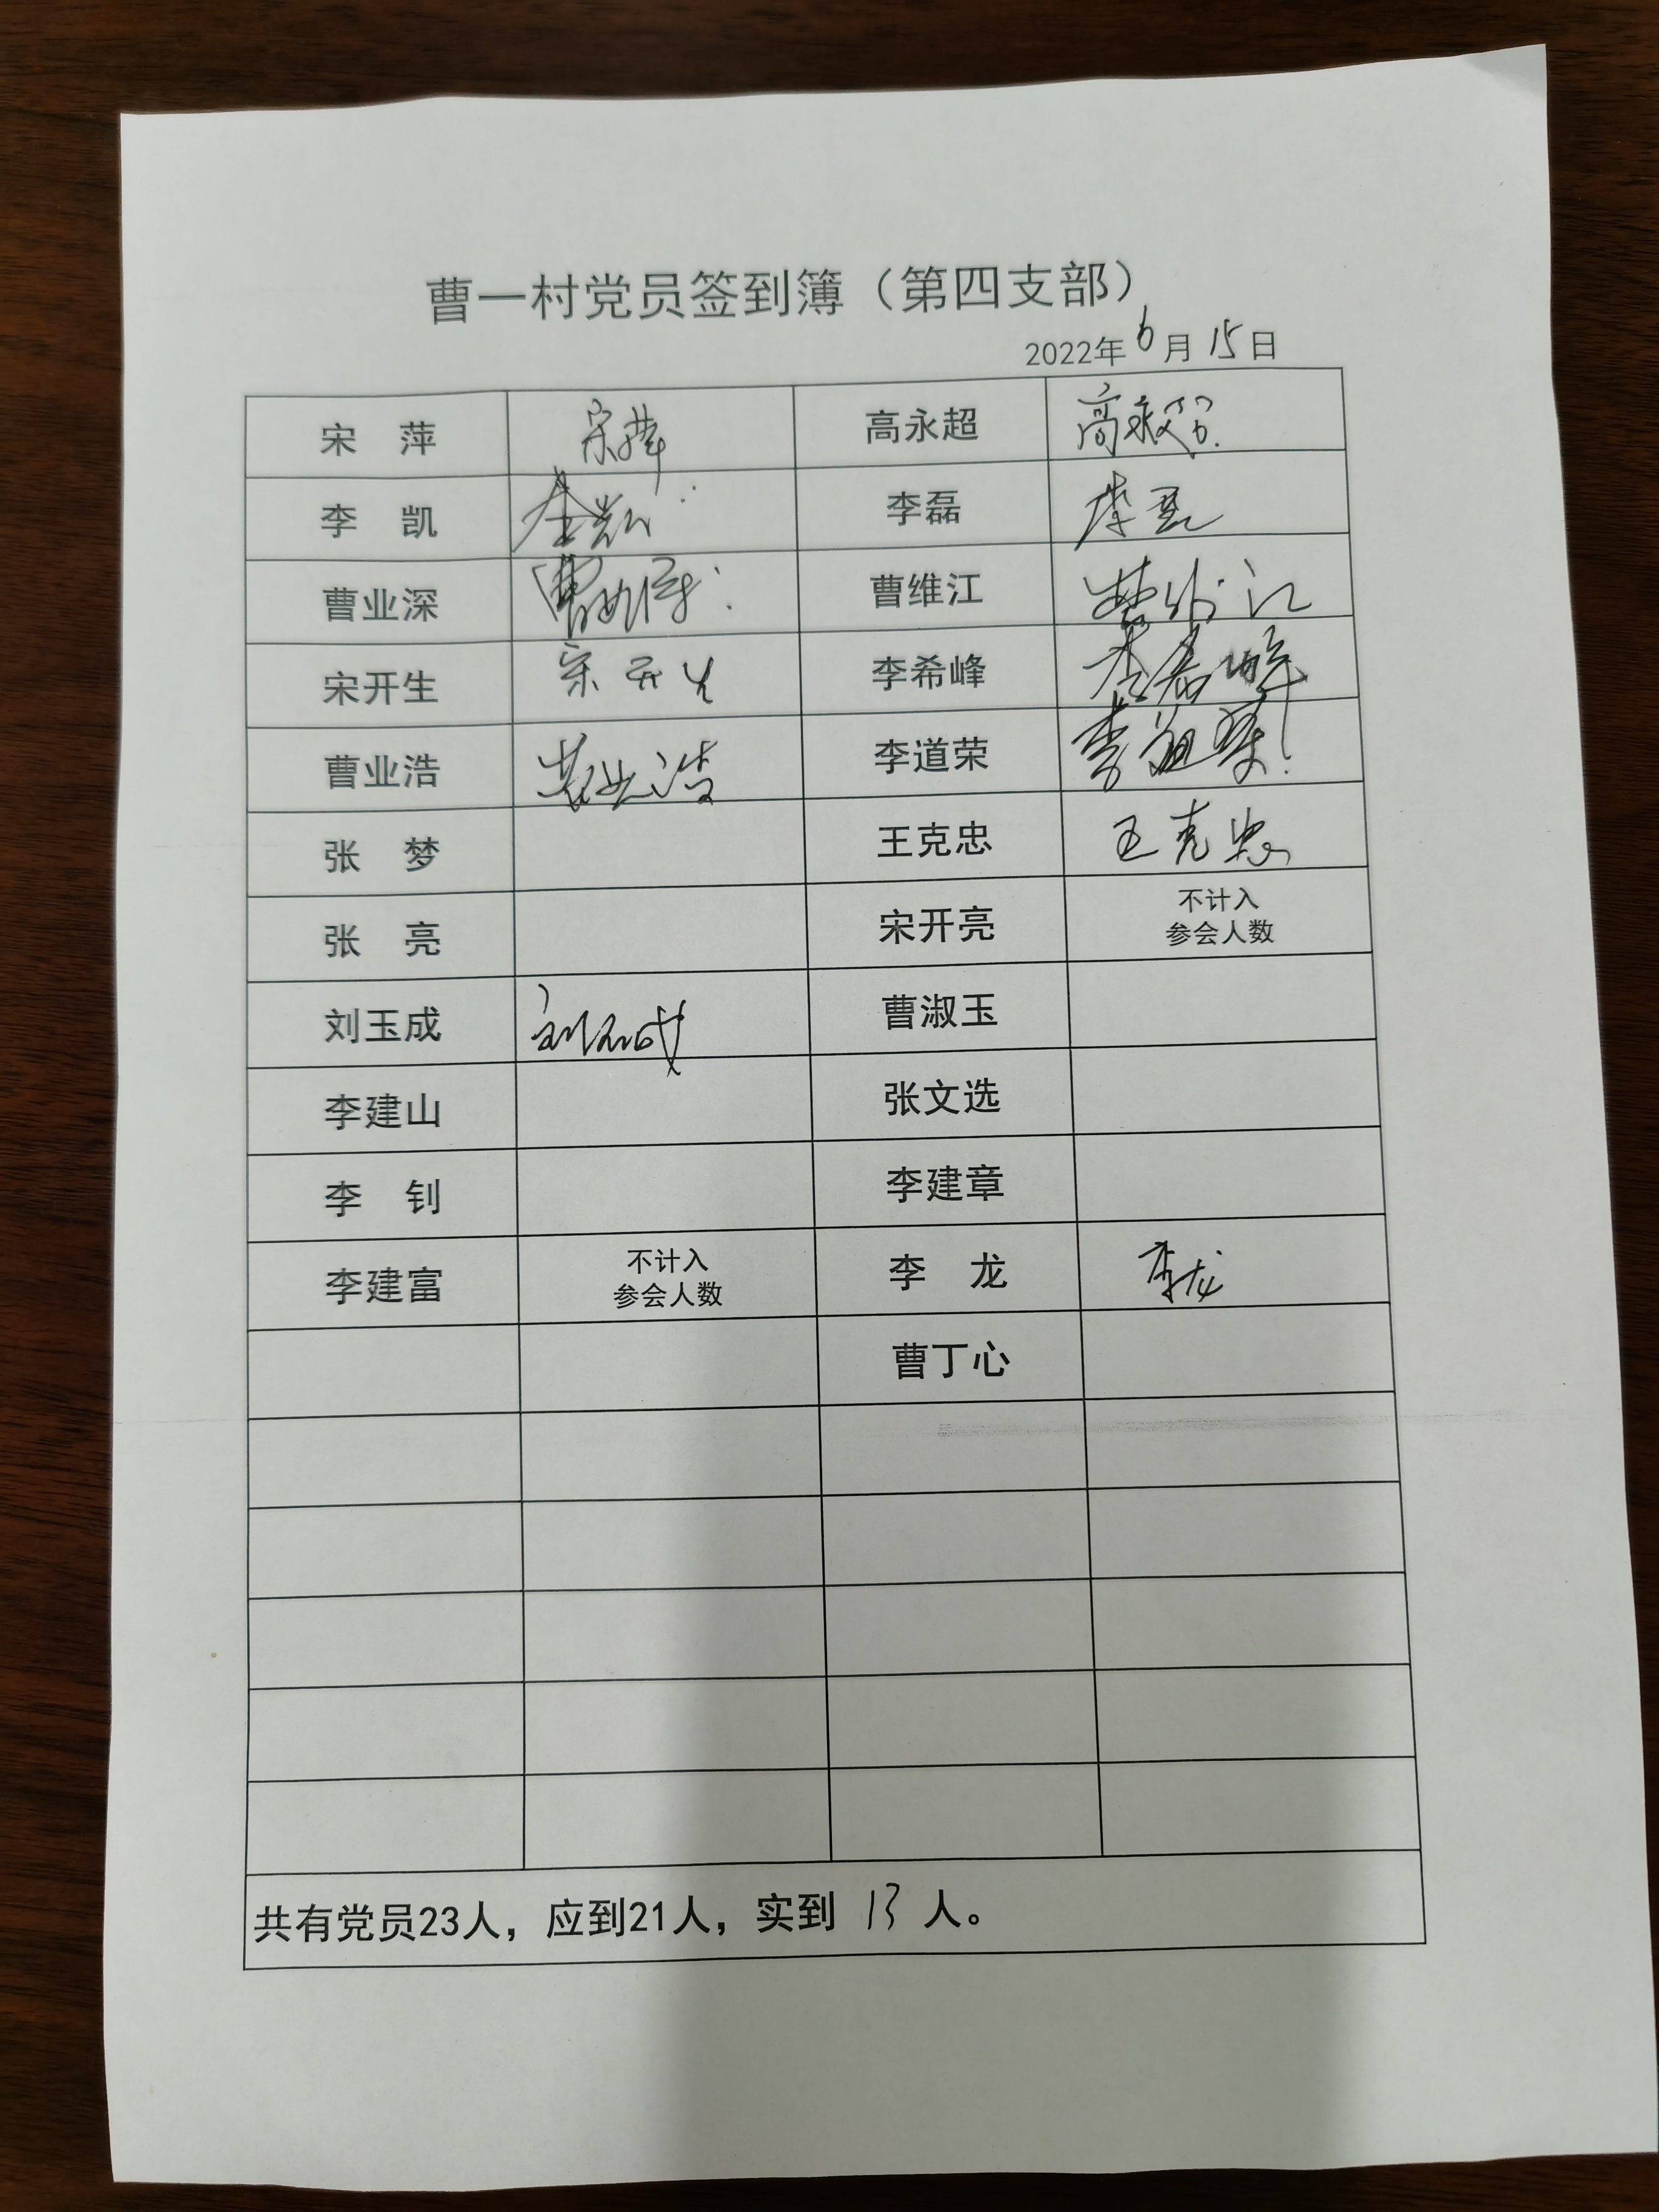 曹一村党员签到簿（第四支部）
2022年6月15日
宋 萍 宋萍 高永超 高永超
李 凯 李凯 李磊 李磊
曹业深 曹业深 曹维江 曹维江
宋开生 宋开生 李希峰 李希峰
曹业浩 曹业浩 李道荣 李道荣
张 梦 王克忠 王克忠
张 亮 宋开亮 不计入
参会人数
刘玉成 刘玉成 曹淑玉
李建山 张文选
李 钊 李建章
李建富 不计入
参会人数 李 龙 李龙
曹丁心
共有党员23人，应到21人，实到 13 人。